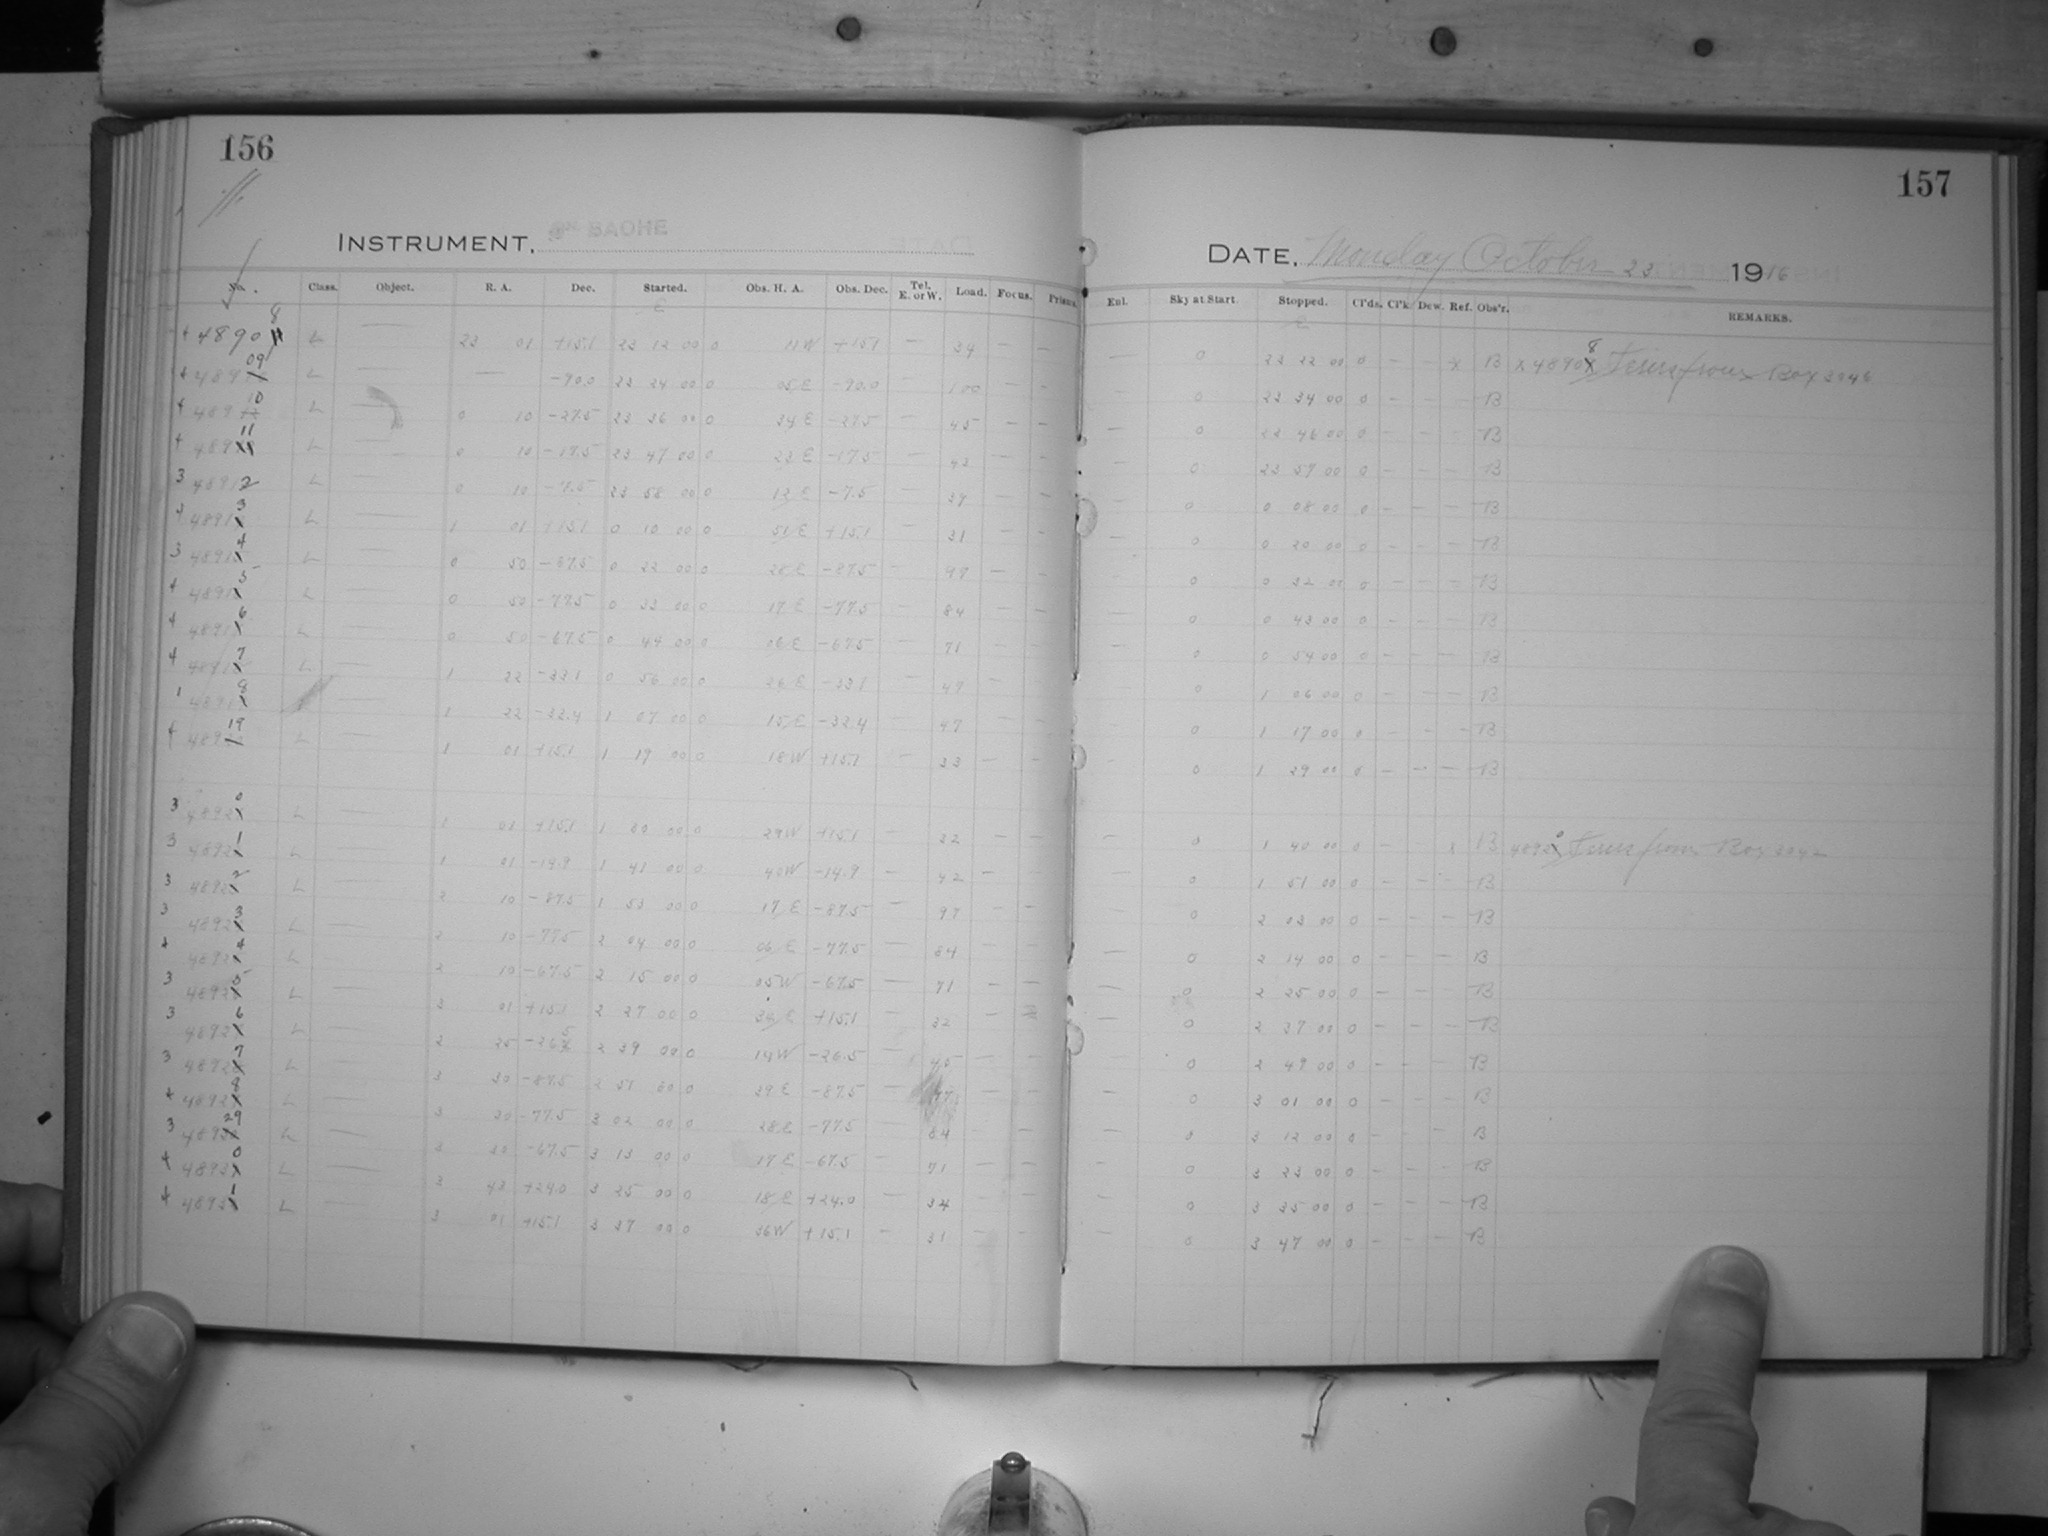 156
157
INSTRUMENT.
DATE. Monday October 23 1916
No. Class. Object. R. A. Dec. Started. Obs. H. A. Obs. Dec. Tel. E. or W. Load. Focus. Prism. Enl. Sky at Start. Stopped. Cl'ds. Cl'k. Dew. Ref. Obs'r. REMARKS.
4 48908 L — 23 01 +15.1 23 12 00 0 11 W +15.1 — 34 — — — 0 23 22 00 0 — — x B x 48908 Ferns from Box 3046
4 48909 L — — -90.0 23 24 00 0 05 E -90.0 — 100 — — 0 23 34 00 0 — — — B
4 48910 L — 0 10 -27.5 23 36 00 0 34 E -27.5 — 45 — — — 0 23 46 00 0 — — — B
4 48911 L — 0 10 -17.5 23 47 00 0 23 E -17.5 — 42 — — — 0 23 57 00 0 — — — B
3 48912 L — 0 10 -7.5 23 58 00 0 12 E -7.5 — 39 — — — 0 0 08 00 0 — — — B
48913 L — 1 01 +15.1 0 10 00 0 51 E +15.1 — 31 — — — 0 0 20 00 0 — — — B
3 48914 L — 0 50 -87.5 0 22 00 0 28 E -87.5 — 97 — — — 0 0 32 00 0 — — — B
4 48915 L — 0 50 -77.5 0 33 00 0 17 E -77.5 — 84 — — — 0 0 43 00 0 — — — B
4 48916 L — 0 50 -67.5 0 44 00 0 06 E -67.5 — 71 — — — 0 0 54 00 0 — — — B
4 48917 L — 1 22 -33.1 0 56 00 0 26 E -33.1 — 47 — — 0 1 06 00 0 — — — B
1 48918 — 1 22 -32.4 1 07 00 0 15 E -32.4 — 47 — — 0 1 17 00 0 — — — B
4 48919 L — 1 01 +15.1 1 19 00 0 18 W +15.1 — 33 — — 0 1 29 00 0 — — — B
3 48920 L — 1 01 +15.1 1 30 00 0 29 W +15.1 — 32 — — — 0 1 40 00 0 — — x B 48920 Ferns from Box 3042
3 48921 L — 1 01 -14.9 1 41 00 0 40 W -14.9 — 42 — — — 0 1 51 00 0 — — — B
3 48922 L — 2 10 -87.5 1 53 00 0 17 E -87.5 — 97 — — — 0 2 03 00 0 — — — B
3 48923 L — 2 10 -77.5 2 04 00 0 06 E -77.5 — 84 — — — 0 2 14 00 0 — — — B
4 48924 L — 2 10 -67.5 2 15 00 0 05 W -67.5 — 71 — — — 0 2 25 00 0 — — — B
3 48925 L — 3 01 +15.1 2 27 00 0 34 E +15.1 — 32 — — — 0 2 37 00 0 — — — B
3 48926 L — 2 25 -26.5 2 39 00 0 14 W -26.5 — 45 — — — 0 2 49 00 0 — — — B
3 48927 L — 3 30 -87.5 2 51 00 0 39 E -87.5 — 97 — — — 0 3 01 00 0 — — — B
4 48928 L — 3 30 -77.5 3 02 00 0 28 E -77.5 — 84 — — — 0 3 12 00 0 — — — B
3 48929 L — 3 30 -67.5 3 13 00 0 17 E -67.5 — 71 — — — 0 3 23 00 0 — — — B
4 48930 L — 3 43 +24.0 3 25 00 0 18 E +24.0 — 34 — — — 0 3 35 00 0 — — — B
4 48931 L — 3 01 +15.1 3 37 00 0 36 W +15.1 — 31 — — — 0 3 47 00 0 — — — B